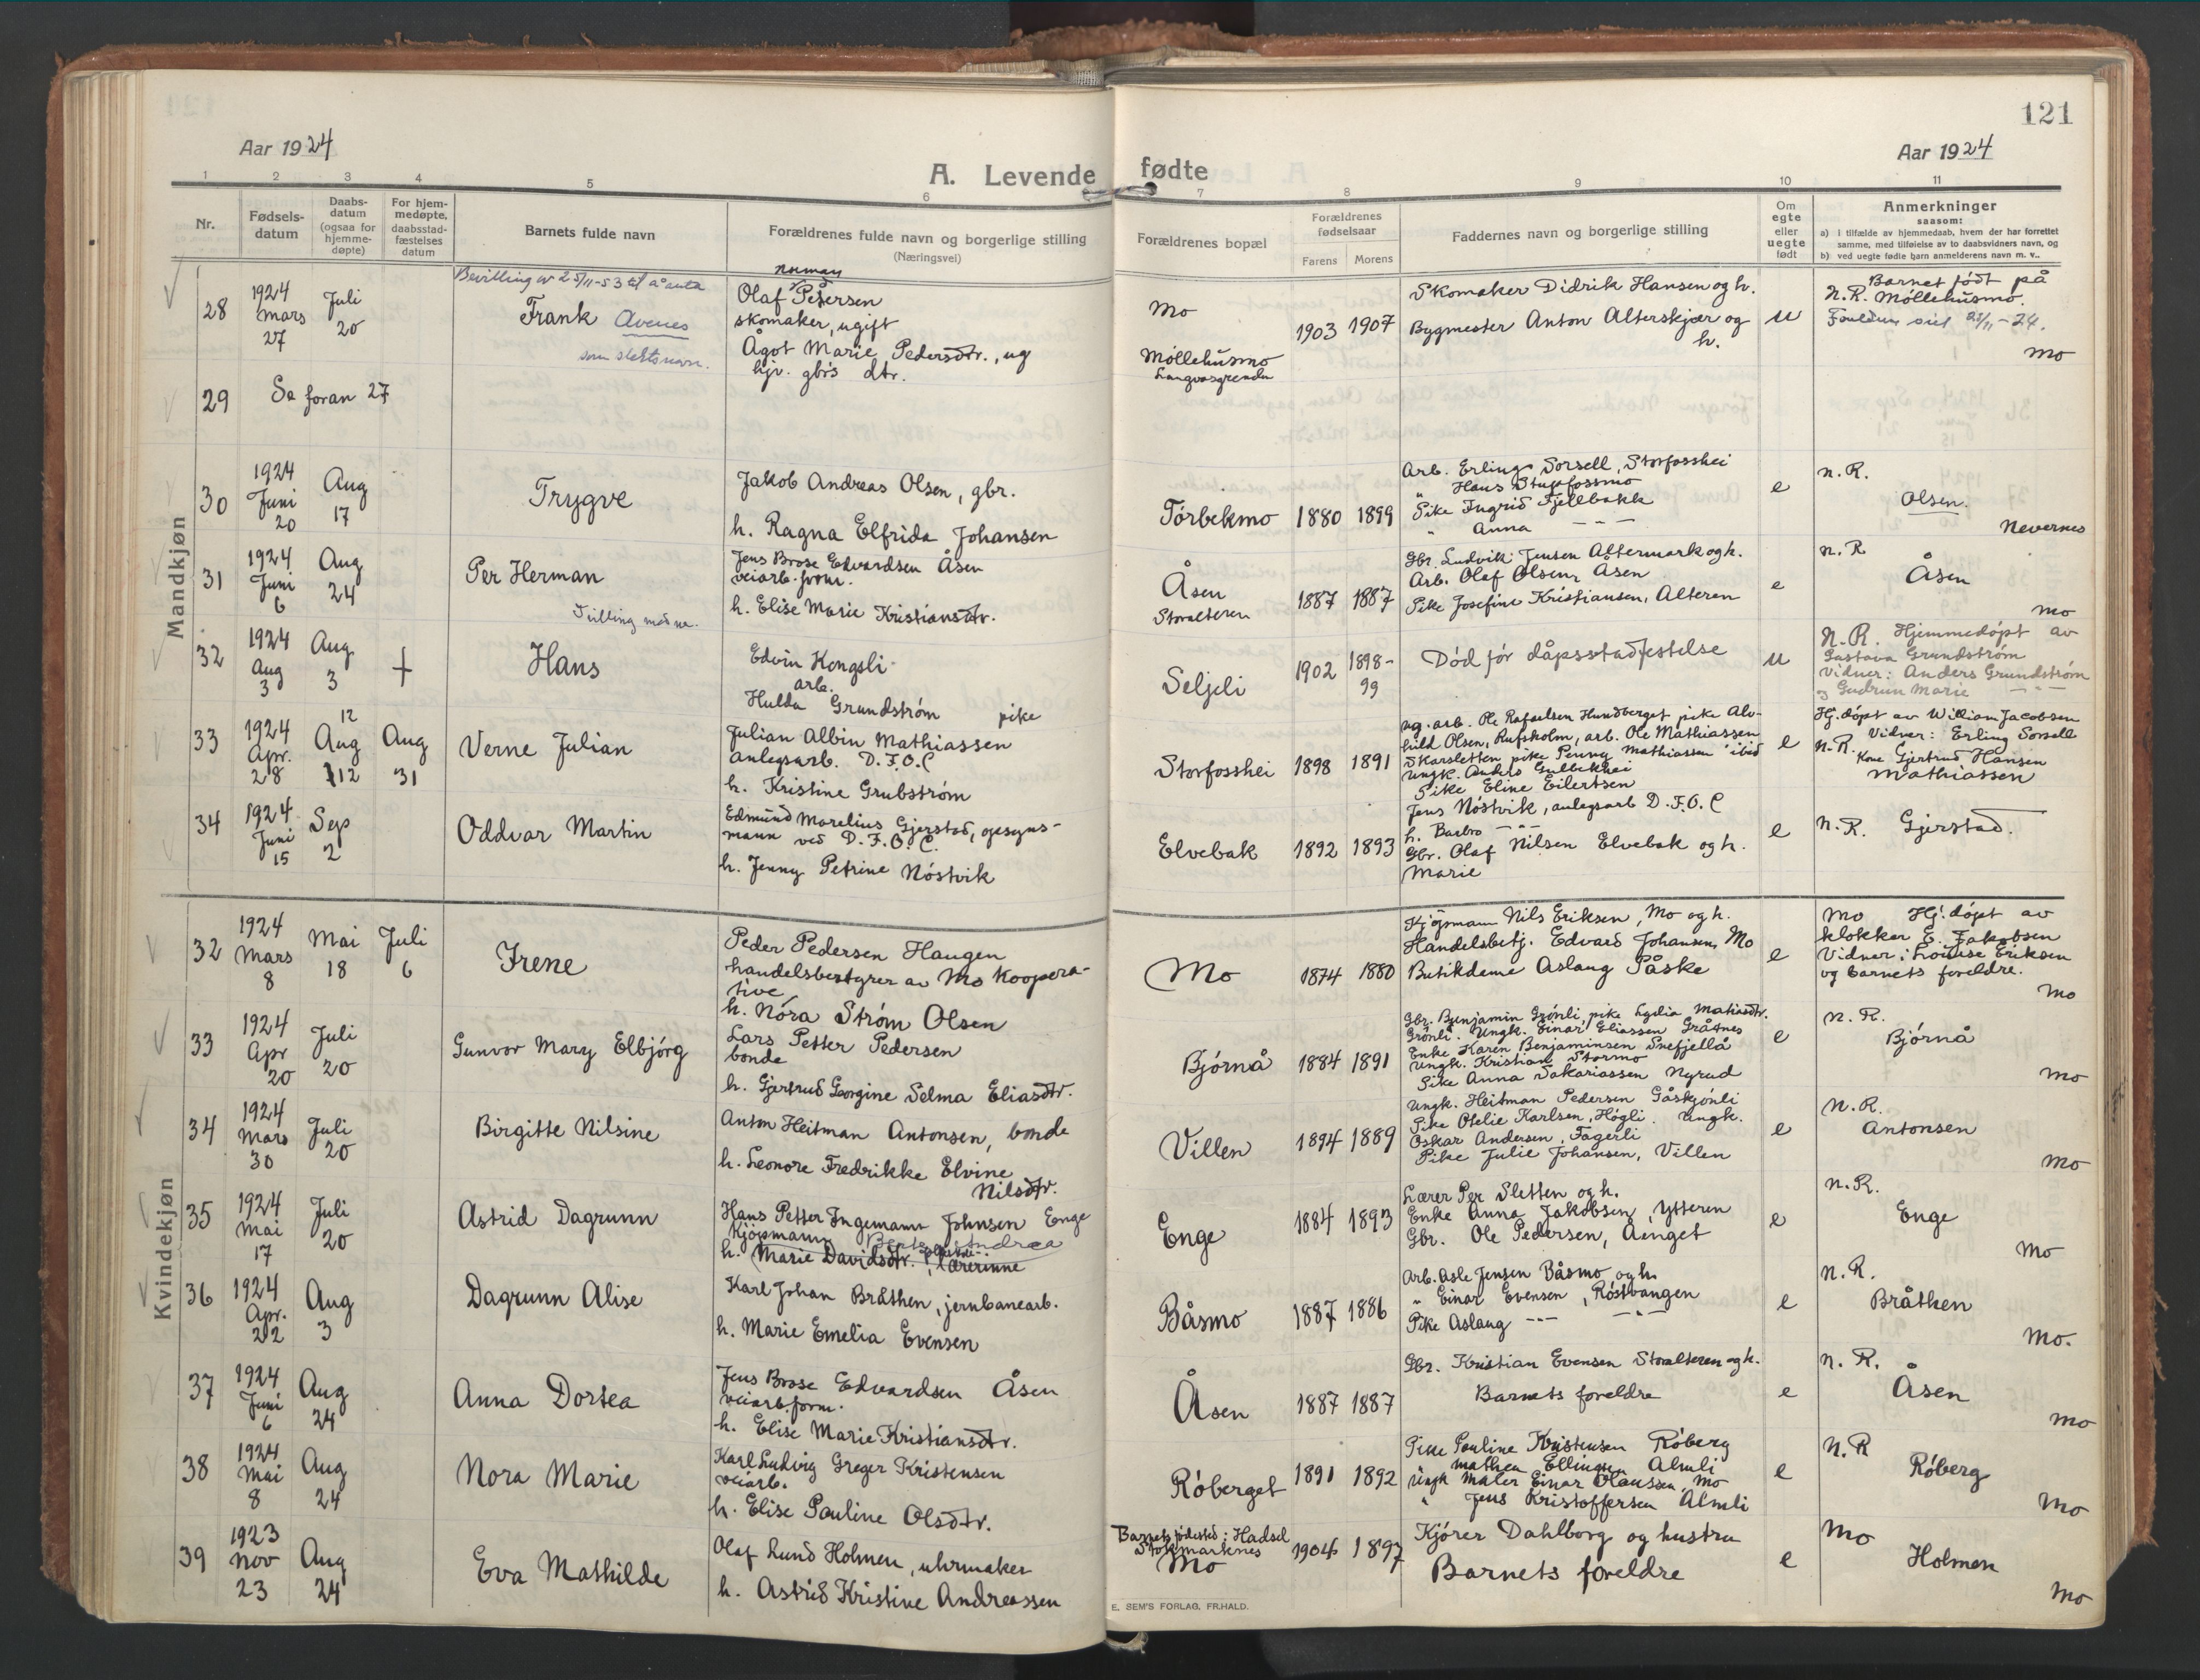 121
Aar 1924
A. Levende fødte
Aar 1924
1 2 3 4 5 6 7 8 9 10 11
Nr.
Fødsels-
datum
Daabs-
datum
(ogsaa for
hjemme-
døpte)
For hjem-
medøpte,
daabsstad-
fæstelses
datum
Barnets fulde navn
Forældrenes fulde navn og borgerlige stilling
(Næringsvei)
Forældrenes bopæl
Forældrenes
fødselsaar
Farens Morens
Faddernes navn og borgerlige stilling
Om
egte
eller
uegte
født
Anmerkninger
saasom:
a) i tilfælde av hjemmedaab, hvem der har forrettet
samme, med tilføielse av to daabsvidners navn, og
b) ved uegte fødte barn anmelderens navn m. v..
Mandkjøn
28
1924
Mars
27
Juli
20
Bevilling av 25/11-53 til å anta
Frank Avenes
som slektsnavn.
Olaf Petersen
skomaker, ugift
Ågot Marie Pedersdtr., ug
hjv. gbr's dtr.
Mo
Møllehusmo
Langvasgrenden
1903 1907
Skomaker Didrik Hansen og h.
Bygmester Anton Alterskjær og
h.
u
Barnet født på
N.R. Møllehusmo.
Mo
29
Se foran 27
30
1924
Juni
20
Aug
17
Trygve
Jakob Andreas Olsen, gbr.
h. Ragna Elfrida Johansen
Tørbekmo
1880 1899
Arb. Erling Sorsell, Storfosshei
" Hans Stupfossmo
Pike Ingrid Fjellbakk
" Anna — " —
e
N.R.
Olsen.
Nevernes
31
1924
Juni
6
Aug
24
Per Herman
Tvilling med nr.
Jens Brose Edvardsen Åsen
veiarb. form.
h. Elise Marie Kristiansdtr.
Åsen
Storalteren
1887 1887
Gbr. Ludvik Jensen Altermark og h.
Arb. Olaf Olsen, Åsen
Pike Josefine Kristiansen, Alteren
e
N.R.
Åsen
Mo
32
1924
Aug
3
Aug
3
+
Hans
Edvin Kongsli
arb.
Hulda Grundstrøm pike
Seljeli
1902 1898-
99
Død før dåpsstadfestelse
u
N.R. Hjemmedøpt av
Gustava Grundstrøm
Vidner: Anders Grundstrøm
og Gudrun Marie — " —
33
1924
Apr.
28
12
Aug
12
Aug
31
Verne Julian
Julian Albin Mathiassen
anlegsarb. D.F.O.C
h. Kristine Grubstrøm
Storfosshei
1898 1891
ug. arb. Ole Rafaelsen Hundberget pike Alv-
hild Olsen, Rufsholm, arb. Ole Mathiassen
Skarsletten pike Penny Mathiassen ibid
Ungk. Anders Gulbekhei
Pike Eline Eilertsen
e
Hj.døpt av William Jacobsen
Vidner: Erling Sorsell
N.R. Kone Gjertrud Hansen
Mathiassen
34
1924
Juni
15
Sep
2
Oddvar Martin
Edmund Marelius Gjerstad, opsyns-
mann ved D.F.O.C.
h. Jenny Petrine Nøstvik
Elvebak
1892 1893
Jens Nøstvik, anlegsarb D.F.O.C
h. Barbro — " —
Gbr. Olaf Nilsen Elvebak og h.
Marie
e
N.R. Gjerstad.
Kvindekjøn
32
1924
Mars
8
Mai
18
Juli
6
Irene
Peder Pedersen Haugen
handelsbestyrer av Mo Koopera-
tive
h. Nora Strøm Olsen
Mo
1874 1880
Kjøpmann Nils Eriksen, Mo og h.
Handelsbetj. Edvard Johansen, Mo
Butikdame Aslaug Påske
e
Mo Hj.døpt av
klokker E. Jakobsen
Vidner: Louise Eriksen
og barnets foreldre.
Mo
33
1924
Apr
20
Juli
20
Gunvor Mary Elbjørg
Lars Petter Pedersen
bonde
h. Gjertrud Georgine Selma Eliasdtr.
Bjørnå
1884 1891
Gbr. Benjamin Grønli, pike Lydia Matiasdtr.
Grønli. Ungk. Einar Eliassen Gråtnes
Enke Karen Benjaminsen Snefjellå
Ungk. Kristian Stormo
Pike Anna Sakariassen Nyrud
e
N.R.
Bjørnå
Mo
34
1924
Mars
30
Juli
20
Birgitte Nilsine
Anton Heitman Antonsen, bonde
h. Leonore Fredrikke Elvine
Nilsdtr.
Villen
1894 1889
Ungk. Heitman Pedersen Gåskjønli
Pike Otelie Karlsen, Høgli. Ungk.
Oskar Andersen, Fagerli
Pike Julie Johansen, Villen
e
N.R.
Antonsen
Mo
35
1924
Mai
17
Juli
20
Astrid Dagrunn
Hans Petter Ingemann Johnsen Enge
Kjøpmann Andrea
h. Marie Davidsdtr., lærerinne
Enge
1884 1893
Lærer Per Sletten og h.
Enke Anna Jakobsen, Ytteren
Gbr. Ole Pedersen, Aenget
e
N.R.
Enge
Mo
36
1924
Apr.
22
Aug
3
Dagrunn Alise
Karl Johan Bråthen, jernbanearb.
h. Marie Emelia Evensen
Båsmo
1887 1886
Arb. Asle Jensen Båsmo og h.
" Einar Evensen, Røstvangen
Pike Aslaug — " — — " —
e
N.R.
Bråthen
Mo.
37
1924
Juni
6
Aug
24
Anna Dortea
Jens Brose Edvardsen Åsen
veiarb. form.
h. Elise Marie Kristiansdtr.
Åsen
1887 1887
Gbr. Kristian Evensen Storalteren og h.
Barnets foreldre
e
N.R.
Åsen
Mo
38
1924
Mai
8
Aug
24
Nora Marie
Karl Ludvig Greger Kristensen
veiarb.
h. Elise Pauline Olsdtr.
Røberget
1891 1892
Pike Pauline Kristensen Røberg
" Mathea Ellingsen Almli
Ungk Maler Einar Olaussen, Mo
" Jens Kristoffersen Almli
e
N.R
Røberg
Mo
39
1923
Nov
23
Aug
24
Eva Mathilde
Olaf Lund Holmen, uhrmaker
h. Astrid Kristine Andreassen
Barnets fødested: Hadsel
Stokmarknes
Mo
1904 1897
Kjører Dahlborg og hustru
Barnets foreldre
e
Mo
Holmen
Mo
E. SEM'S FORLAG, FR.HALD.